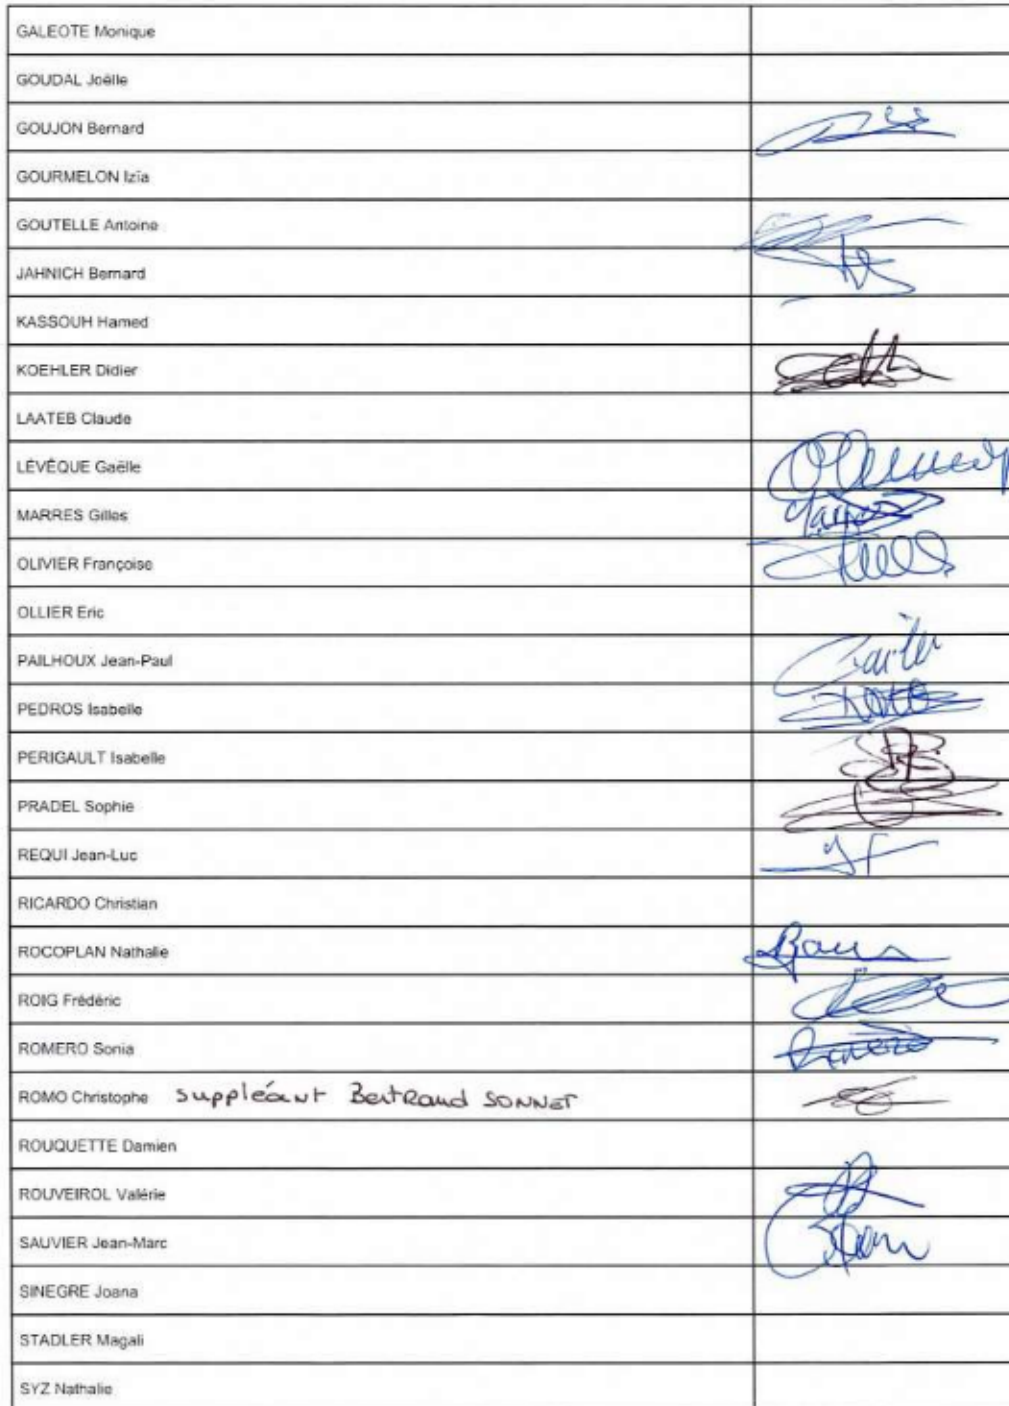 GALEOTE Monique
GOUDAL Joëlle
GOUJON Bernard
GOURMELON Izïa
GOUTELLE Antoine
JAHNICH Bernard
KASSOUH Hamed
KOEHLER Didier
LAATEB Claude
LÉVÊQUE Gaëlle
MARRES Gilles
OLIVIER Françoise
OLLIER Eric
PAILHOUX Jean-Paul
PEDROS Isabelle
PERIGAULT Isabelle
PRADEL Sophie
REQUI Jean-Luc
RICARDO Christian
ROCOPLAN Nathalie
ROIG Frédéric
ROMERO Sonia
ROMO Christophe suppléant Bertrand SONNET
ROUQUETTE Damien
ROUVEIROL Valérie
SAUVIER Jean-Marc
SINEGRE Joana
STADLER Magali
SYZ Nathalie